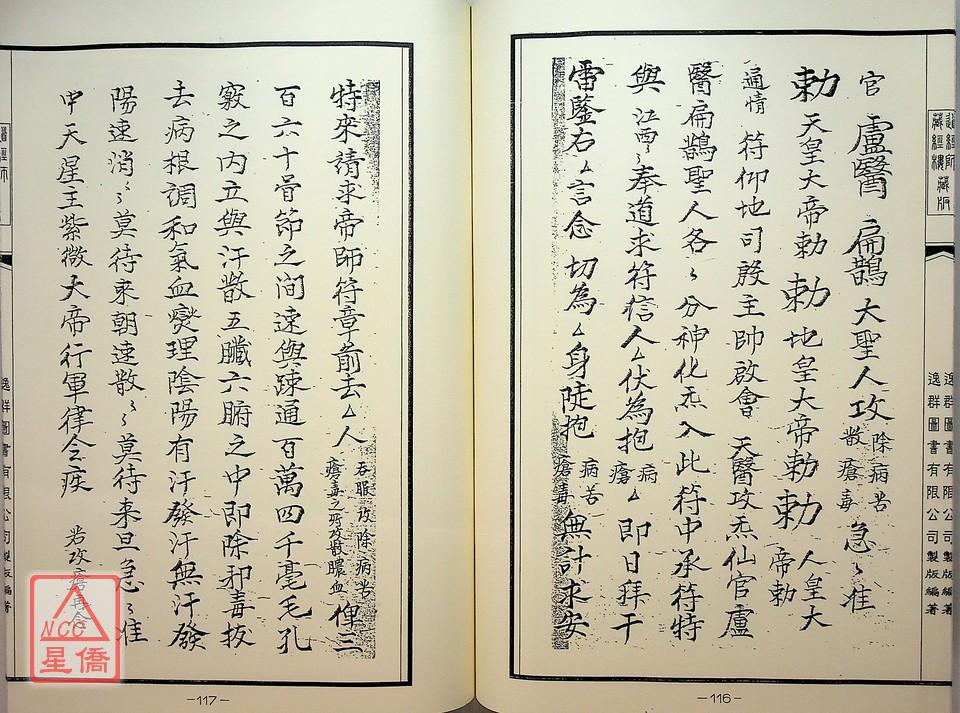 道經師
藏經樓 藏版
逸群圖書有限公司製版編著
官 盧醫 扁鵲大聖人攻除病苦散瘡毒急〻准
勅天皇大帝勅勅地皇大帝勅勅人皇大帝勅
通情 符仰地司殷主帥啟會 天醫攻炁仙官盧
醫扁鵲聖人各〻分神化炁入此符中承符特
與江雲〻奉道求符信人△伏為抱病瘡△即日拜干
雷鑒右△言念 切為△身陡抱病苦瘡毒無計求安
-116-
特來請求帝師符章前去△人吞服攻除病苦瘡毒之所攻散膿血俾三
百六十骨節之间速與疎通百萬四千毫毛孔
竅之内立與汗散五臟六腑之中即除邪毒拔
去病根調和氣血燮理陰陽有汗發汗無汗發
陽速消〻莫待來朝速散〻莫待来旦急〻准
中天星主紫微大帝行軍律令疾 若攻瘡再念
-117-
NCC
星僑